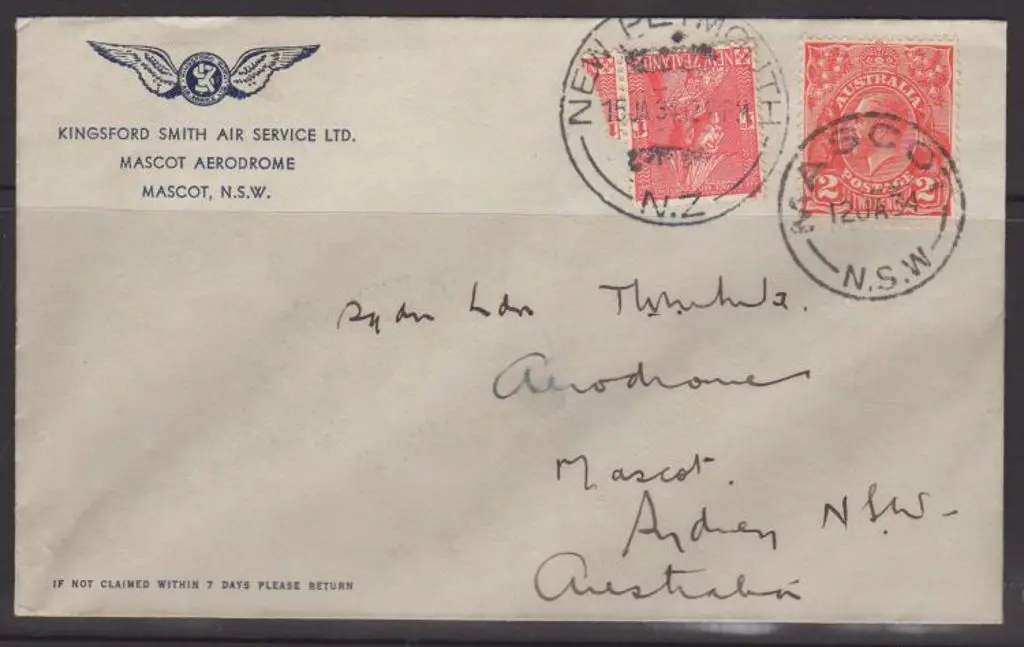 KINGSFORD SMITH AIR SERVICE LTD.
MASCOT AERODROME
MASCOT, N.S.W.
NEW PLYMOUTH
N.Z
NEW ZEALAND
AUSTRALIA
POSTAGE
2 2
MASCOT
12 JA 34
N.S.W
Aerodrome
Mascot.
Sydney NSW-
Australia
IF NOT CLAIMED WITHIN 7 DAYS PLEASE RETURN